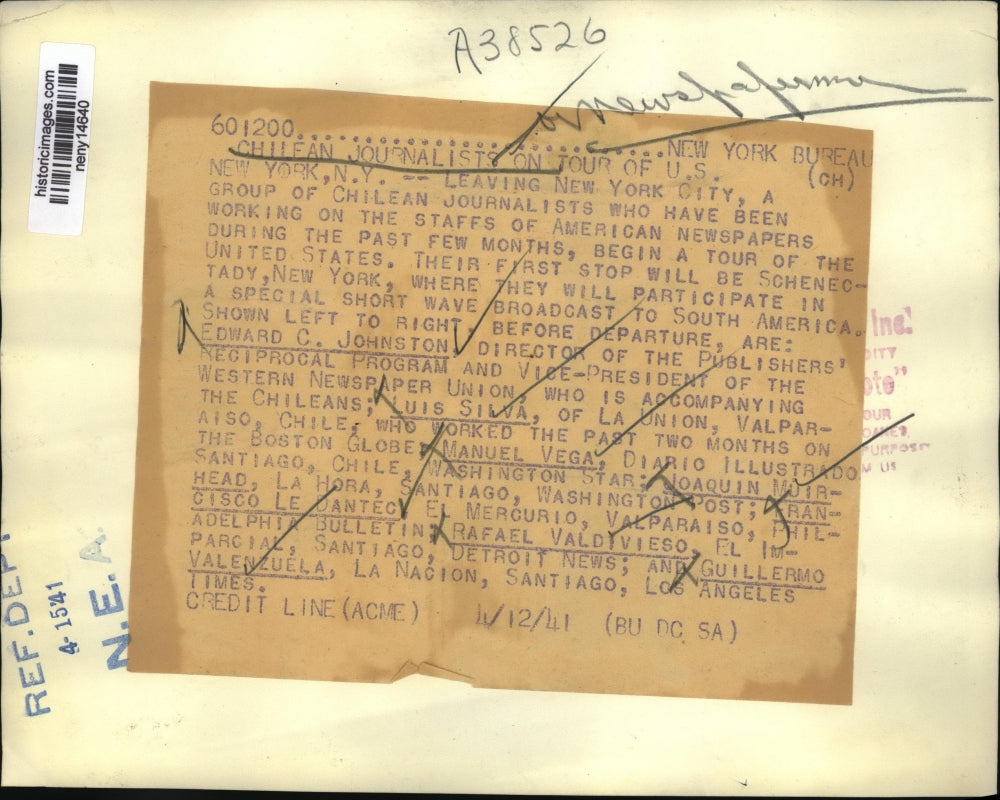 A38526
Newspapermen
historicimages.com
neny14640
601200..............................NEW YORK BUREAU
CHILEAN JOURNALISTS ON TOUR OF U.S.
(CH)
NEW YORK, N.Y. -- LEAVING NEW YORK CITY, A
GROUP OF CHILEAN JOURNALISTS WHO HAVE BEEN
WORKING ON THE STAFFS OF AMERICAN NEWSPAPERS
DURING THE PAST FEW MONTHS, BEGIN A TOUR OF THE
UNITED STATES. THEIR FIRST STOP WILL BE SCHENEC-
TADY, NEW YORK, WHERE THEY WILL PARTICIPATE IN
A SPECIAL SHORT WAVE BROADCAST TO SOUTH AMERICA.
SHOWN LEFT TO RIGHT, BEFORE DEPARTURE, ARE:
EDWARD C. JOHNSTON, DIRECTOR OF THE PUBLISHERS'
RECIPROCAL PROGRAM AND VICE-PRESIDENT OF THE
WESTERN NEWSPAPER UNION, WHO IS ACCOMPANYING
THE CHILEANS; LUIS SILVA, OF LA UNION, VALPAR-
AISO, CHILE, WHO WORKED THE PAST TWO MONTHS ON
THE BOSTON GLOBE; MANUEL VEGA, DIARIO ILLUSTRADO
SANTIAGO, CHILE, WASHINGTON STAR; JOAQUIN MUIR-
HEAD, LA HORA, SANTIAGO, WASHINGTON POST; FRAN-
CISCO LE DANTEC, EL MERCURIO, VALPARAISO, PHIL-
ADELPHIA BULLETIN; RAFAEL VALDIVIESO, EL IM-
PARCIAL, SANTIAGO, DETROIT NEWS; AND GUILLERMO
VALENZUELA, LA NACION, SANTIAGO, LOS ANGELES
TIMES.
CREDIT LINE (ACME) 4/12/41 (BU DC SA)
REF. DEPT
4-15 41
N.E.A.
Inc.
OUR
PURPOSE